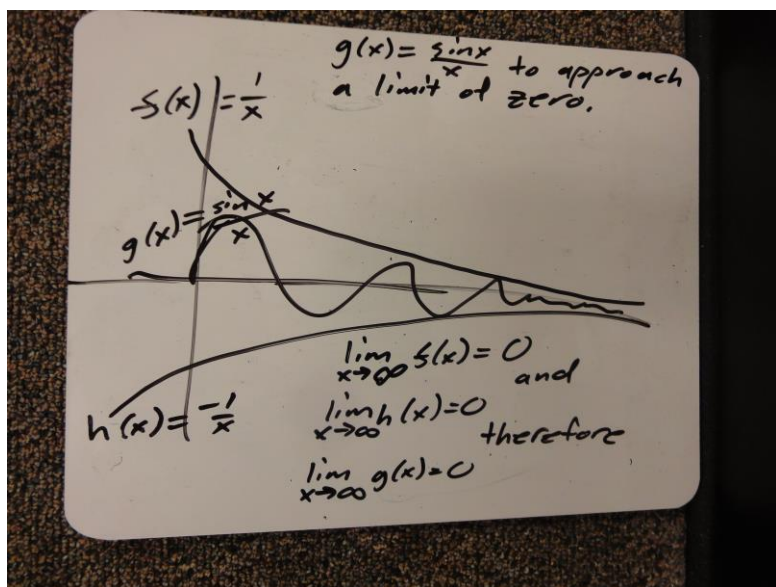 g(x) = sinx/x to approach
a limit of zero.
f(x) = 1/x
g(x) = sin x/x
lim x→∞ f(x) = 0
and
h(x) = -1/x
lim x→∞ h(x) = 0
therefore
lim x→∞ g(x) = 0